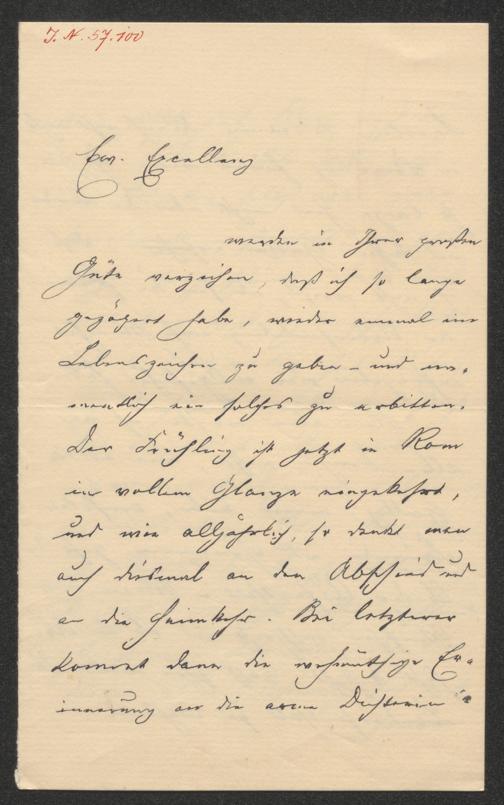 J. N. 57.100
Ew. Excellenz
werden in Ihrer großen
Güte verzeihen, daß ich so lange
gezögert habe, wieder einmal ein
Lebenszeichen zu geben – und na-
mentlich ein solches zu erbitten.
Der Frühling ist jetzt in Rom
in vollem Glanze eingekehrt,
und wie alljährlich, so denkt man
auch diesmal an den Abschied und
an die Heimkehr. Bei letzterer
kommt dann die wehmüthige Er-
innerung an die arme Dichterin